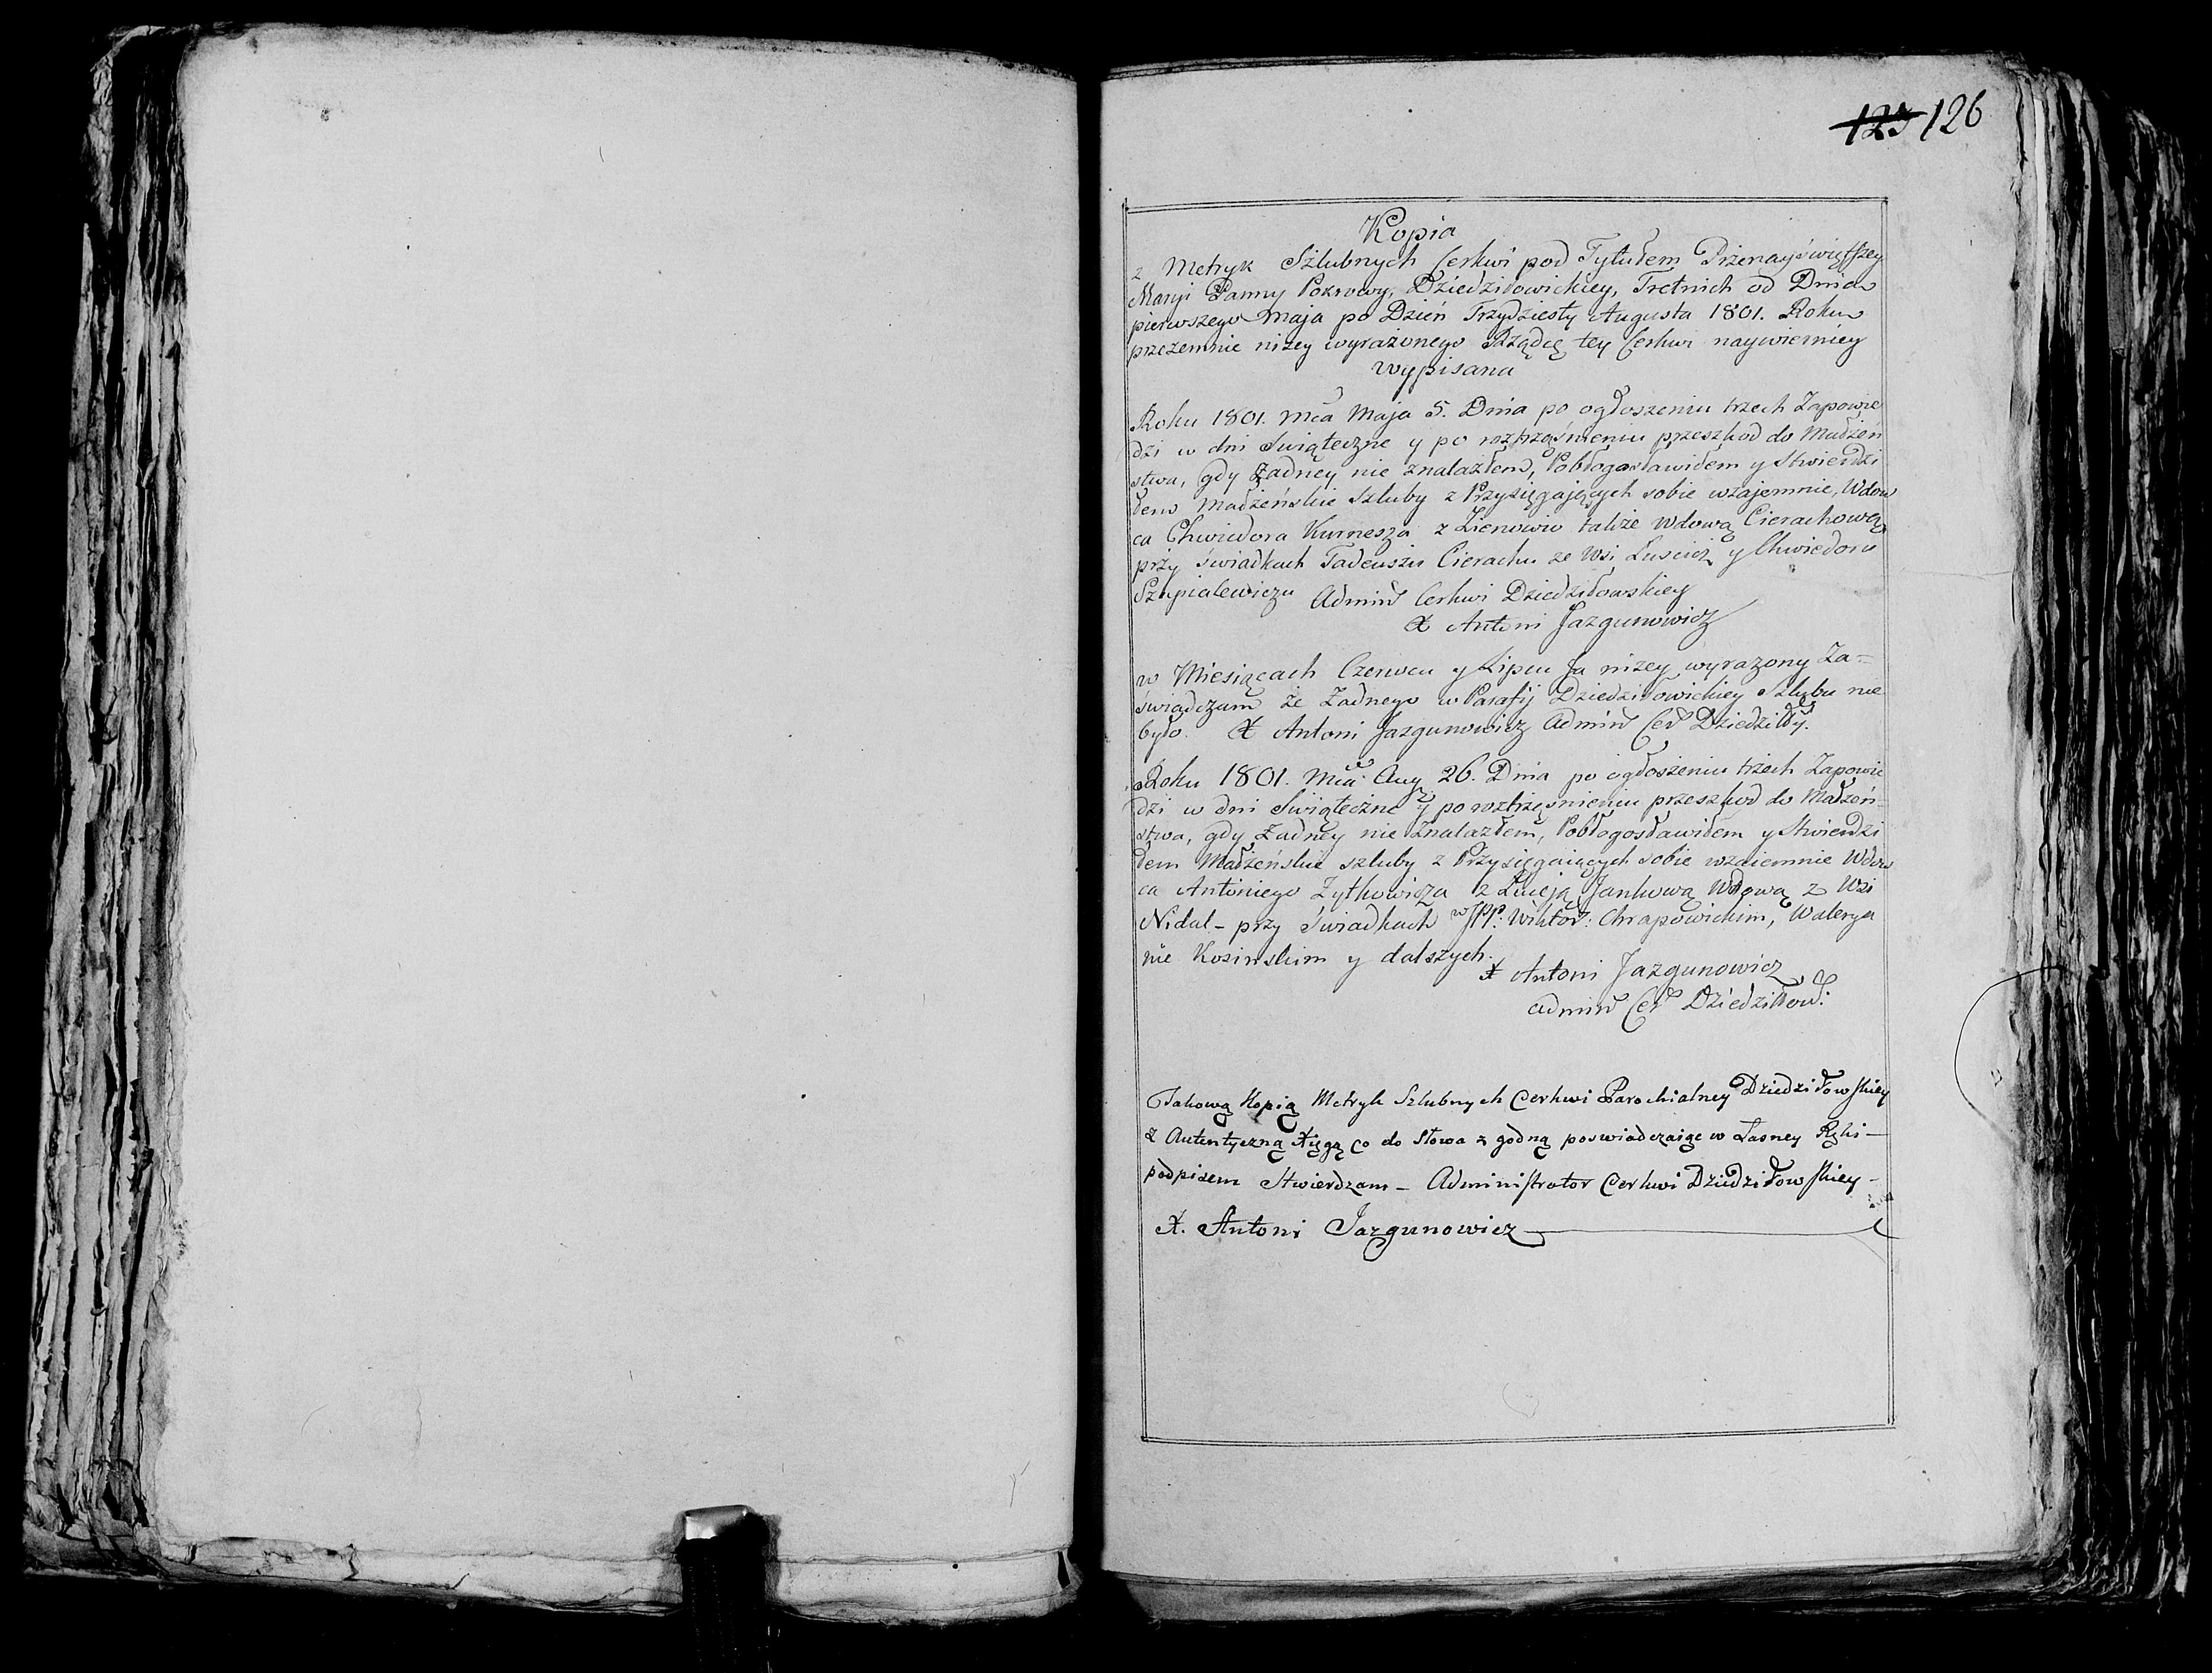 125 126
Kopia
z Metryk Szlubnych Cerkwi pod Tytułem Przenayświętszey
Maryi Panny Pokrowy, Dziedziłowickiey, Tretnich od Dnia
pierwszego Maja po Dzień Trzydziesty Augusta 1801. Roku
przezemnie niżey wyrażonego Rządcę tey Cerkwi naywierniey
wypisana
Roku 1801. Mca Maja 5. Dnia po ogłoszeniu trzech Zapowie
dzi w dni Świąteczne y po roztrząśnieniu przeszkod do Małżeń
stwa, gdy Żadney nie znalazłem, Pobłogosławiłem y Stwierdzi
łem Małżeńskie Szluby z Przysięgających sobie wzajemnie, Wdow
ca Chwiedora Kurnesza z Zienowiu także Wdową Cierachową
przy świadkach Tadeuszu Cierachu ze Wsi Luścicz y Chwiedoru
Szupialewiczu Admin Cerkwi Dziedziłowskiey
X Antoni Jazgunowicz
w Miesiącach Czerwcu y Lipcu Ja niżey wyrażony Za-
świadczam że Żadnego w Parafij Dziedziłowickiey Szlubu nie
było. X Antoni Jazgunowicz Admin Cer Dziedziłły.
Roku 1801. Mca Aug 26. Dnia po ogłoszeniu trzech Zapowie
dzi w dni Świąteczne y po roztrzęśnieniu przeszkod do Małżeń
stwa, gdy Żadney nie Znalazłem, Pobłogosławiłem y Stwierdzi
łem Małżeńskie szluby z Przysięgaiących sobie wzaiemnie Wdow
ca Antoniego Zytkowicza z Łucją Jankową Wdową z Wsi
Nidal - przy Świadkach WJPP: Wiktor: Chrapowickim, Walerya
nie Kozinskim y dalszych.
X Antoni Jazgunowicz
Admin Cer Dziedziłłow:
Takową Kopią Metryk Szlubnych Cerkwi Parochialney Dziedziłowskiey
z Autentyczną Xięgą co do Słowa z godną poswiadczaiąc w Łasney Ręki -
podpisem Stwierdzam - Administrator Cerkwi Dziedziłowskiey -
X. Antoni Jazgunowicz